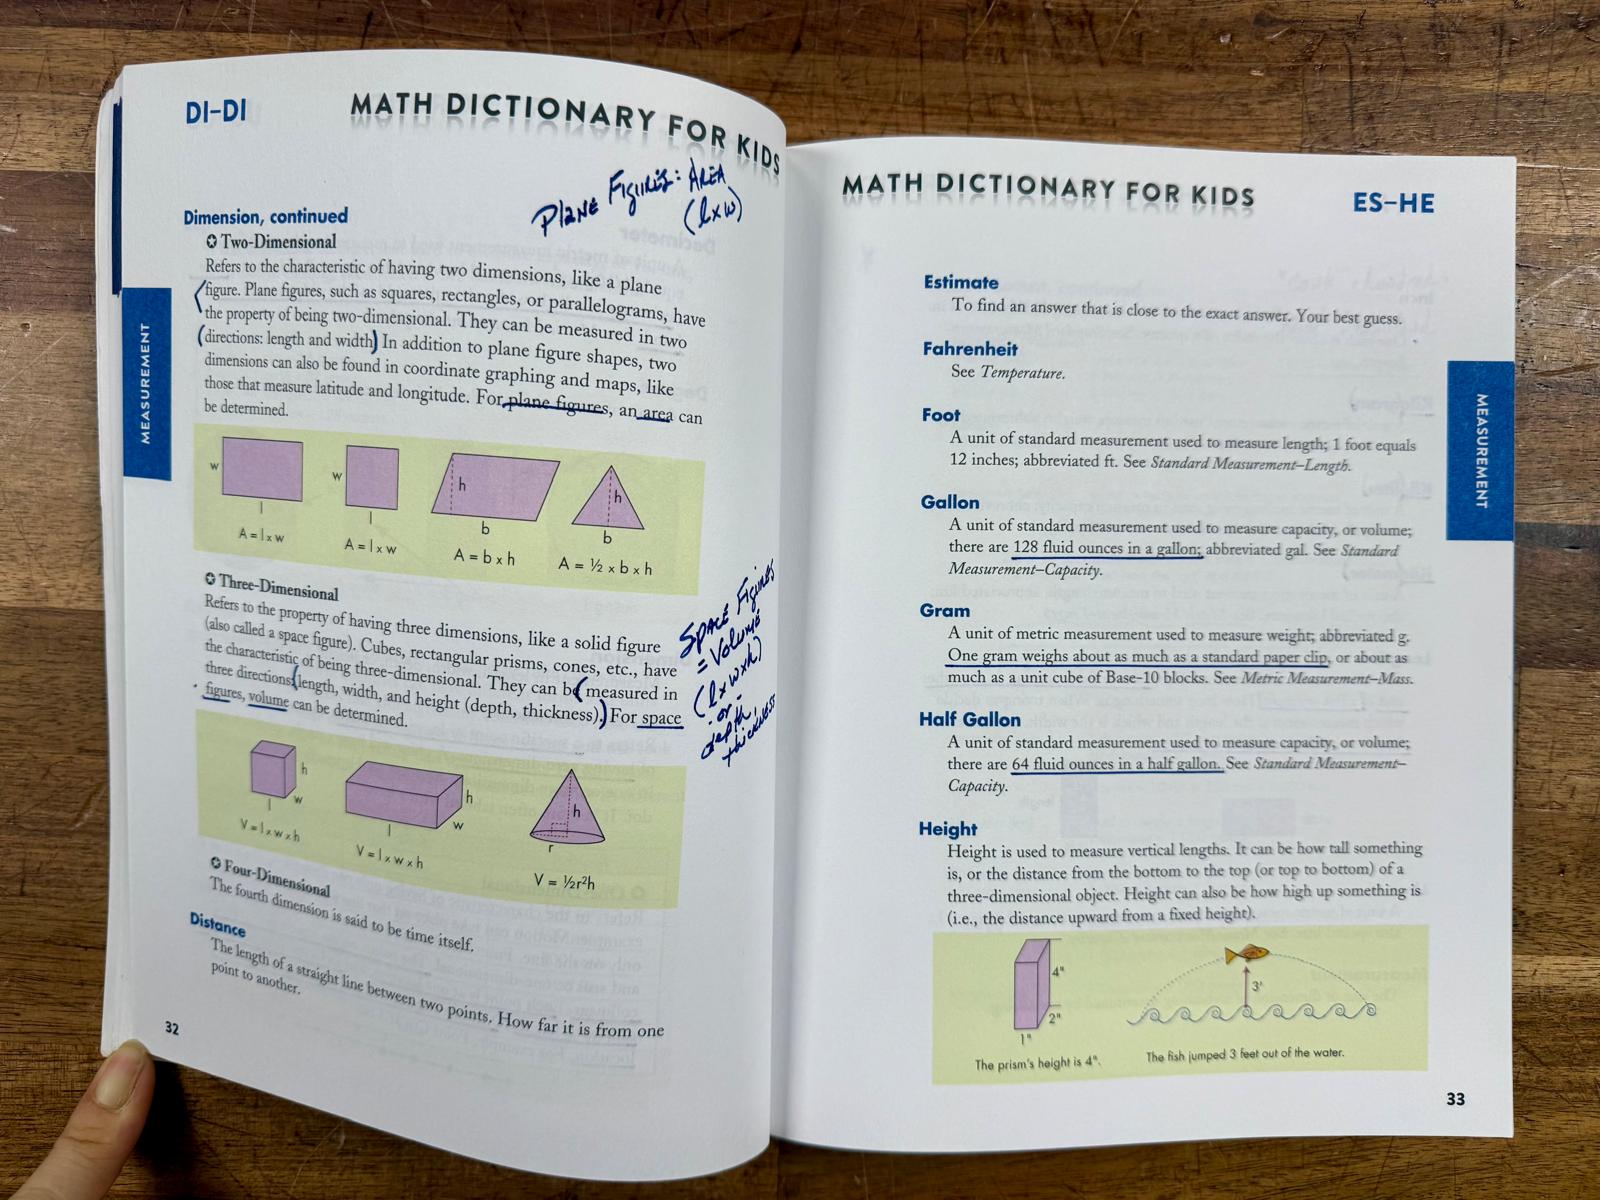 DI–DI
MATH DICTIONARY FOR KIDS
Plane Figures: Area
(l x w)
Dimension, continued
✪ Two-Dimensional
Refers to the characteristic of having two dimensions, like a plane
figure. Plane figures, such as squares, rectangles, or parallelograms, have
the property of being two-dimensional. They can be measured in two
directions: length and width) In addition to plane figure shapes, two
dimensions can also be found in coordinate graphing and maps, like
those that measure latitude and longitude. For plane figures, an area can
be determined.
MEASUREMENT
w
l
A = l x w
w
l
A = l x w
h
b
A = b x h
h
b
A = ½ x b x h
✪ Three-Dimensional
Refers to the property of having three dimensions, like a solid figure
(also called a space figure). Cubes, rectangular prisms, cones, etc., have
the characteristic of being three-dimensional. They can be (measured in
three directions: (length, width, and height (depth, thickness).) For space
figures, volume can be determined.
Space Figures
= Volume
(l x w x h)
- or -
depth,
thickness
h
w
l
V = l x w x h
h
w
l
V = l x w x h
h
r
V = ½r²h
✪ Four-Dimensional
The fourth dimension is said to be time itself.
Distance
The length of a straight line between two points. How far it is from one
point to another.
32
MATH DICTIONARY FOR KIDS
ES–HE
Estimate
To find an answer that is close to the exact answer. Your best guess.
Fahrenheit
See Temperature.
Foot
A unit of standard measurement used to measure length; 1 foot equals
12 inches; abbreviated ft. See Standard Measurement–Length.
Gallon
A unit of standard measurement used to measure capacity, or volume;
there are 128 fluid ounces in a gallon; abbreviated gal. See Standard
Measurement–Capacity.
Gram
A unit of metric measurement used to measure weight; abbreviated g.
One gram weighs about as much as a standard paper clip, or about as
much as a unit cube of Base-10 blocks. See Metric Measurement–Mass.
Half Gallon
A unit of standard measurement used to measure capacity, or volume;
there are 64 fluid ounces in a half gallon. See Standard Measurement–
Capacity.
Height
Height is used to measure vertical lengths. It can be how tall something
is, or the distance from the bottom to the top (or top to bottom) of a
three-dimensional object. Height can also be how high up something is
(i.e., the distance upward from a fixed height).
MEASUREMENT
4"
2"
1"
The prism's height is 4".
3'
The fish jumped 3 feet out of the water.
33